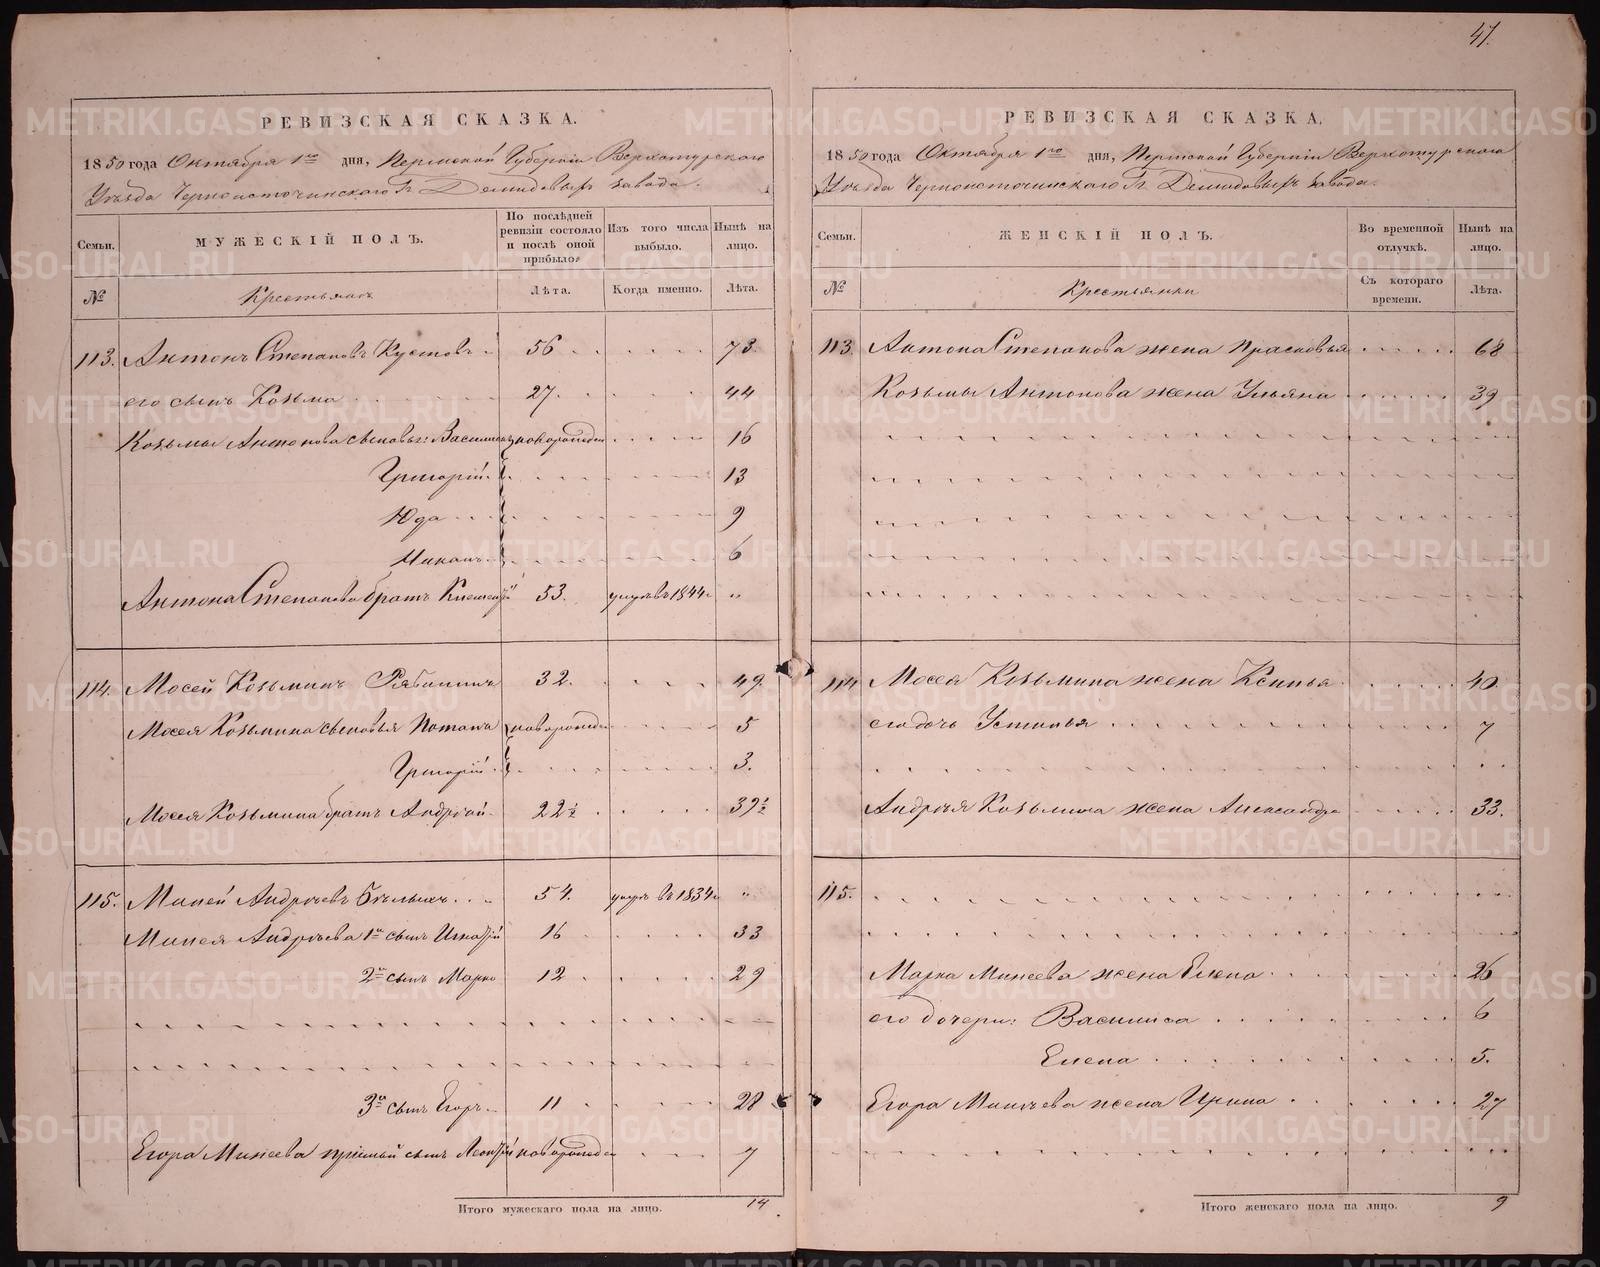 47.
РЕВИЗСКАЯ СКАЗКА.
1850 года Октября 1го дня, Пермской Губернiи Верхотурскаго
Уѣзда Черноисточинскаго Гг. Демидовыхъ завода.
Семьи.
МУЖЕСКIЙ ПОЛЪ.
По послѣдней ревизiи состояло и послѣ оной прибыло.
Изъ того числа выбыло.
Нынѣ на лицо.
№
Крестьянъ
Лѣта.
Когда именно.
Лѣта.
113. Антонъ Степановъ Кустовъ 56 73.
его сынъ Козьма 27. 44
Козьмы Антонова сыновья: Василiй новорожден 16
Григорiй 13
Юда 9
6
Антона Степанова братъ Климентiй 53. умръ въ 1844 "
114. Мосей Козьминъ Рябининъ 32. 49.
Мосея Козьмина сыновья Потапъ новорожден 5
Григорiй 3.
Мосея Козьмина братъ Андрей 22½ 39½
115. Миней Андреевъ Бѣлыхъ 54. умръ въ 1834 "
Минея Андреева 1й сынъ Игнатiй 16 33
2й сынъ Марко 12 29
3й сынъ Егоръ 11 28
Егора Минеева прiемный сынъ Леонтiй новорожден 7
Итого мужескаго пола на лицо. 14
РЕВИЗСКАЯ СКАЗКА.
1850 года Октября 1го дня, Пермской Губернiи Верхотурскаго
Уѣзда Черноисточинскаго Гг. Демидовыхъ завода.
Семьи.
ЖЕНСКIЙ ПОЛЪ.
Во временной отлучкѣ.
Нынѣ на лицо.
№
Крестьянки
Съ котораго времени.
Лѣта.
113. Антона Степанова жена Прасковья 68
Козьмы Антонова жена Ульяна 39
114 Мосея Козьмина жена Ксинья 40.
его дочь Устинья 7
Андрея Козьмина жена Александра 33.
115.
Марка Минеева жена Елена 26
его дочери: Василиса 6
Елена 5.
Егора Минеева жена Ирина 27
Итого женскаго пола на лицо. 9
METRIKI.GASO-URAL.RU